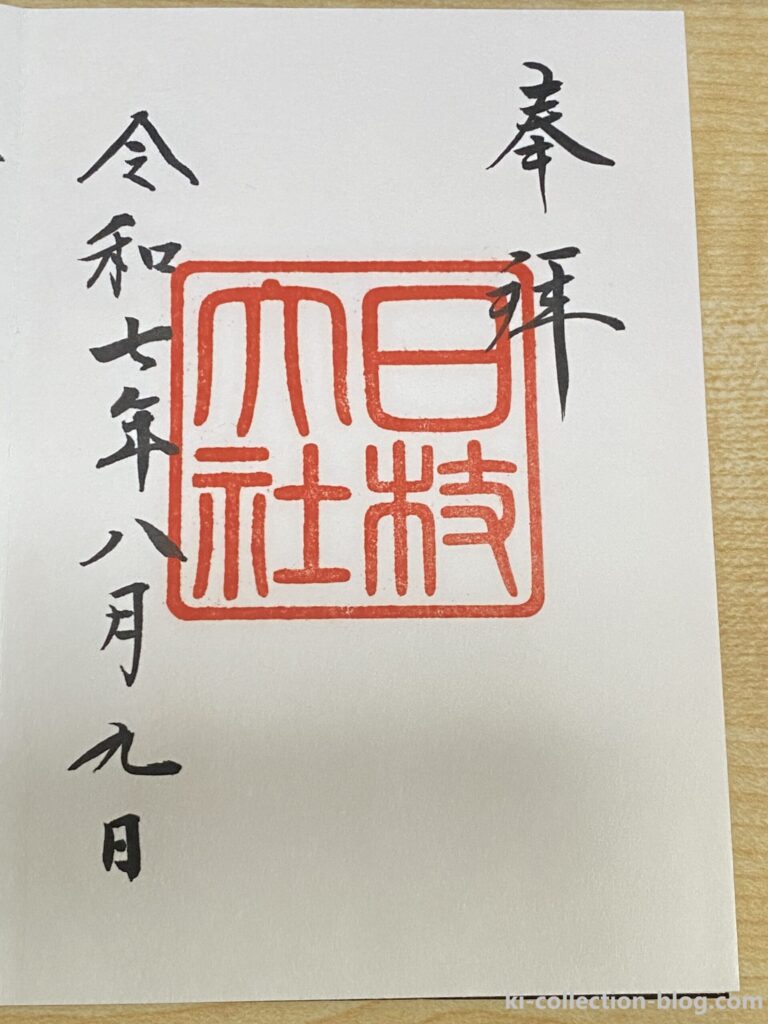 奉拝
日枝
大社
令和七年八月九日
ki-collection-blog.com